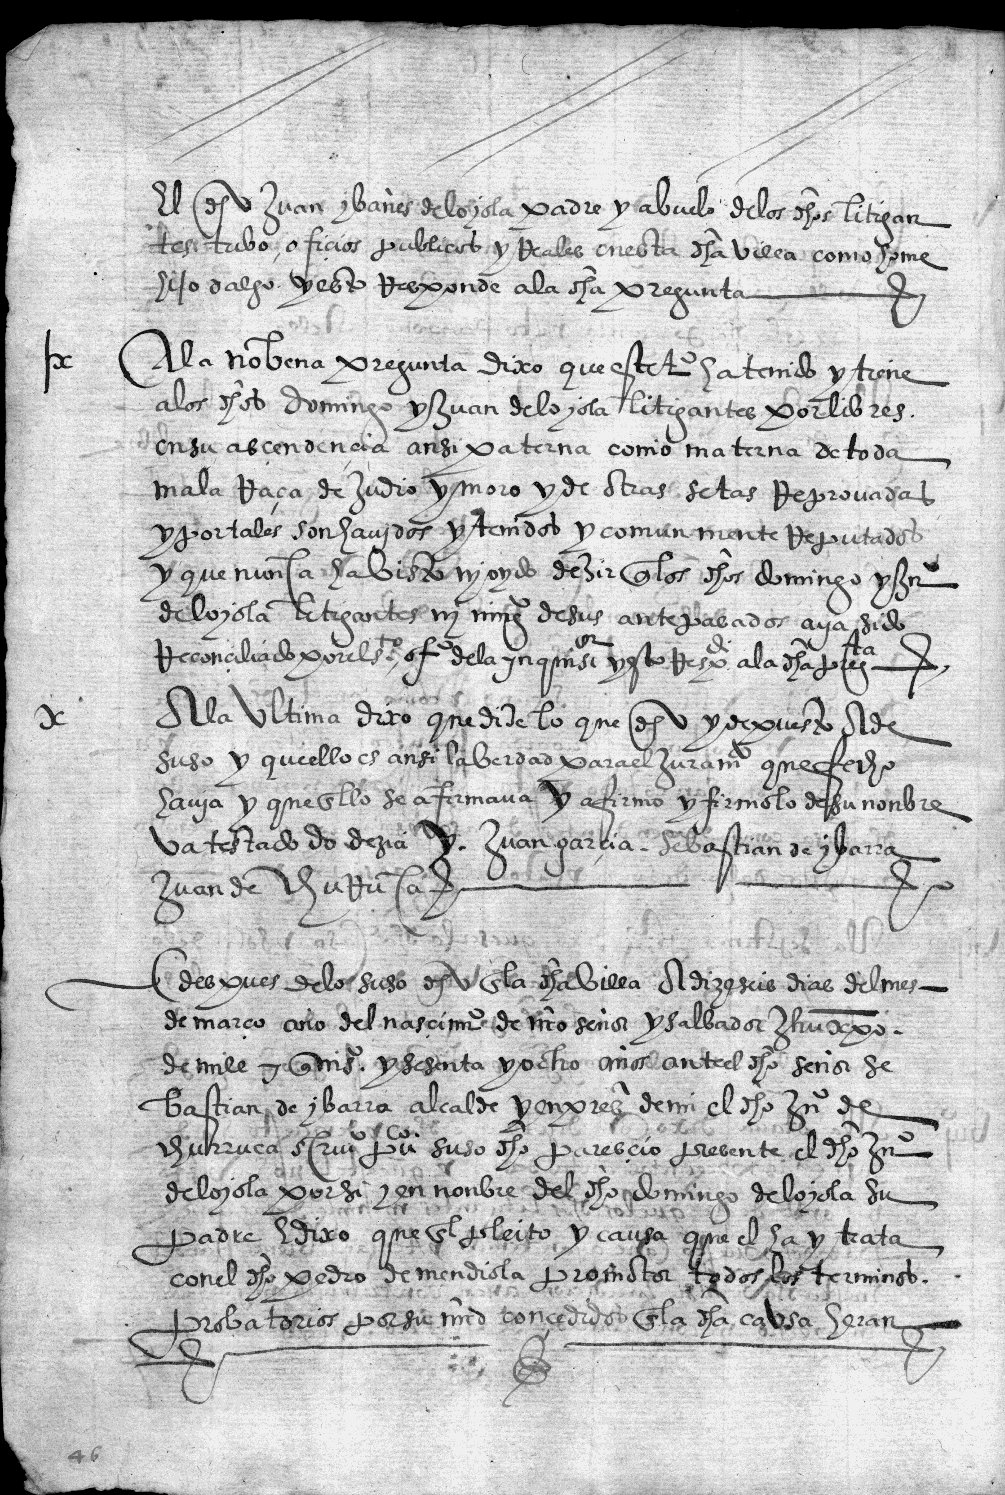 El dho Juan ybañes de loyola padre y abuelo de los dhos litigan
tes tubo oficios publicos y Reales en esta dha villa como home
hijo dalgo y esto Responde a la dha pregunta
ix A la nobena pregunta dixo que este tº ha tenido y tiene
a los dhos domingo y Juan de loyola litigantes por libres
en su ascendençia ansi paterna como materna de toda
mala Raça de Judio y moro y de otras setas Reprovadas
y por tales son havidos y tenidos y comunmente Reputados
y que nunca ha visto ny oydo dezir q los dhos domingo y Juº
de loyola litigantes ny ningº de sus antepasados aya sido
Reconciliado por el stº ofº de la ynquisiºn y esto Respde a la dha pregta
x A la Ultima dixo que dize lo que dho y depuesto A de
suso y que ello es ansi la verdad para el Juramº que fecho
havia y que en ello se afirmava y afirmo y firmolo de su nonbre
va testado do dezia y. Juan garçia. Sebastian de ybarra
Juan de churruca
E despues de lo suso dho en la dha villa A dizeseis dias del mes
de março año del nascimiº de nro señor y salbador Jhu xpo
de mill e quiºs y sesenta y ocho años ante el dho señor se
bastian de ybarra alcalde y en presª de mi el dho Juº de
churruca scrivº puco suso dho paresçio presente el dho Juº
de loyola por si y en nonbre del dho domingo de loyola su
padre E dixo que en el pleito y causa que el ha y trata
con el dho pedro de mendiola promotor todos los terminos
probatorios por su mrd conçedidos en la dha cavsa heran
46